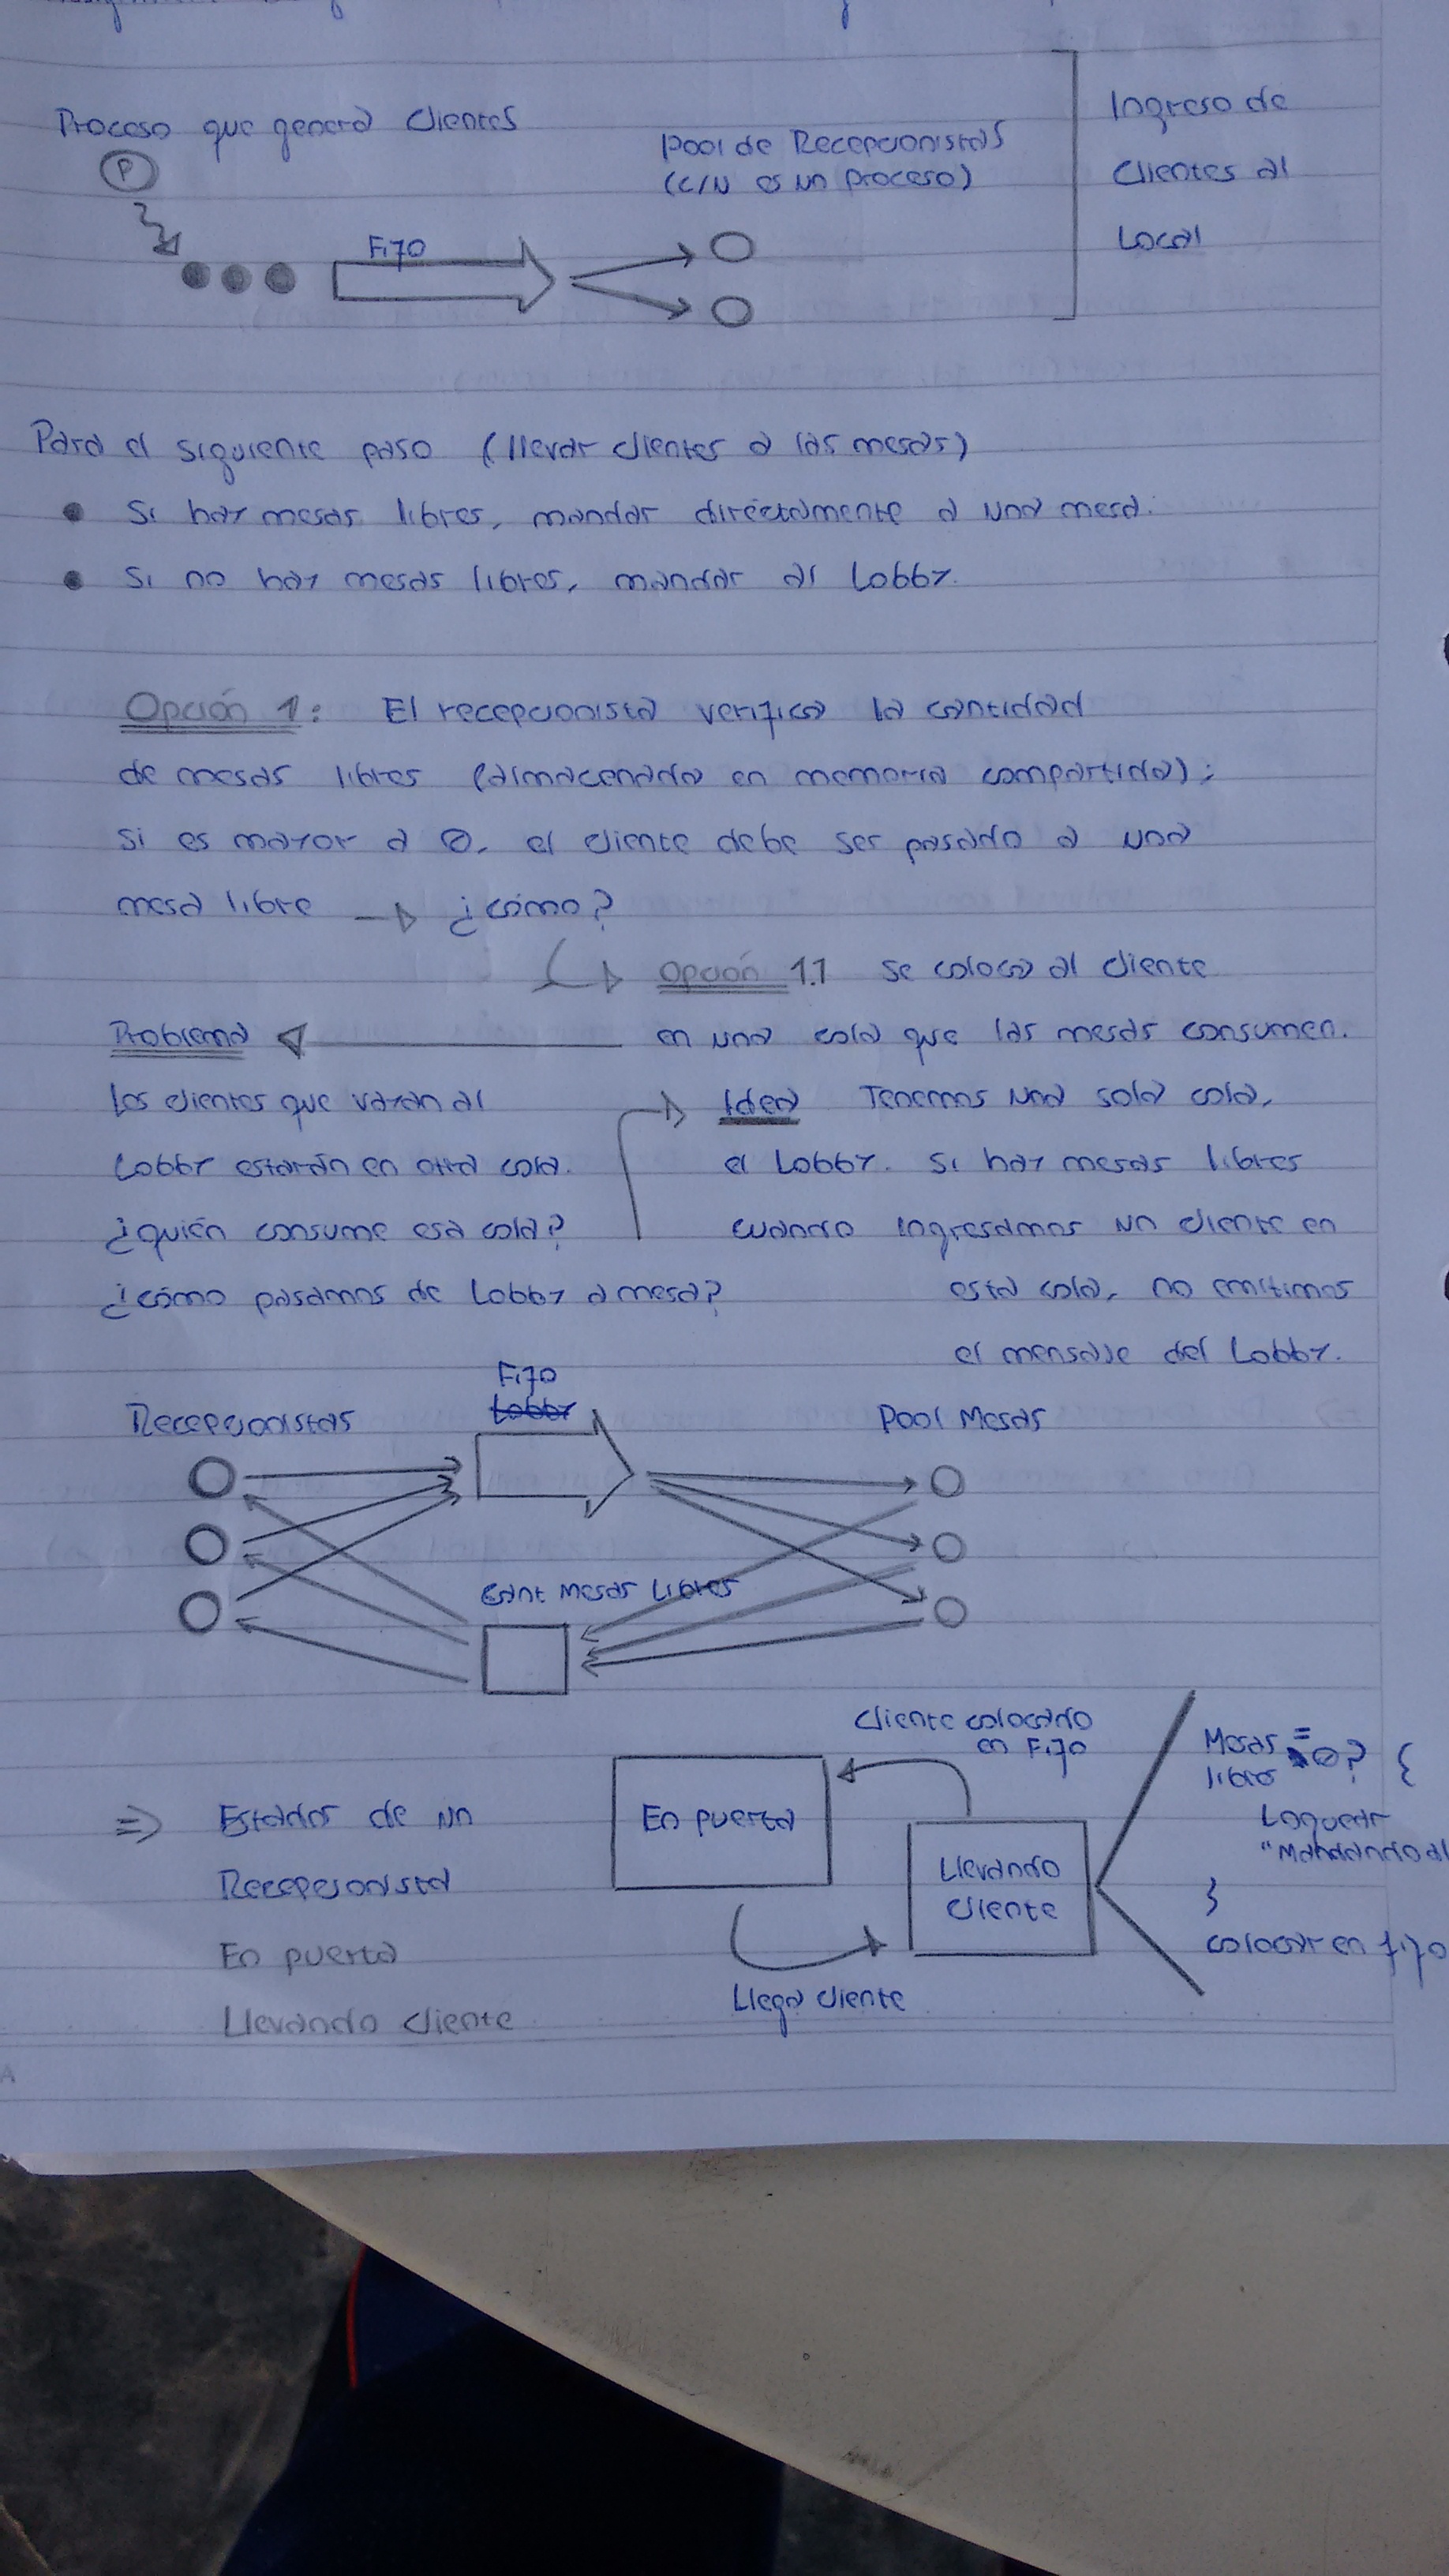 Proceso que genera clientes
P
Fifo
Pool de Recepcionistas
(c/u es un proceso)
Ingreso de
clientes al
Local
Para el siguiente paso (llevar clientes a las mesas)
• Si hay mesas libres, mandar directamente a una mesa.
• Si no hay mesas libres, mandar al Lobby.
Opción 1: El recepcionista verifica la cantidad
de mesas libres (almacenada en memoria compartida);
si es mayor a 0, el cliente debe ser pasado a una
mesa libre → ¿cómo?
Opción 1.1 se coloca al cliente
en una cola que las mesas consumen.
Problema
Los clientes que vayan al
Lobby estarán en otra cola.
¿quién consume esa cola?
¿cómo pasamos de Lobby a mesa?
Idea Tenemos una sola cola,
el Lobby. Si hay mesas libres
cuando ingresamos un cliente en
esta cola, no emitimos
el mensaje del Lobby.
Recepcionistas
Fifo
Lobby
Pool Mesas
Cant Mesas Libres
⇒ Estados de un
Recepcionista
En puerta
Llevando cliente
En puerta
Cliente colocado
en Fifo
Llevando
cliente
Llega cliente
Mesas = 0? {
libres
Loguear
"Mandando al
}
colocar en fifo